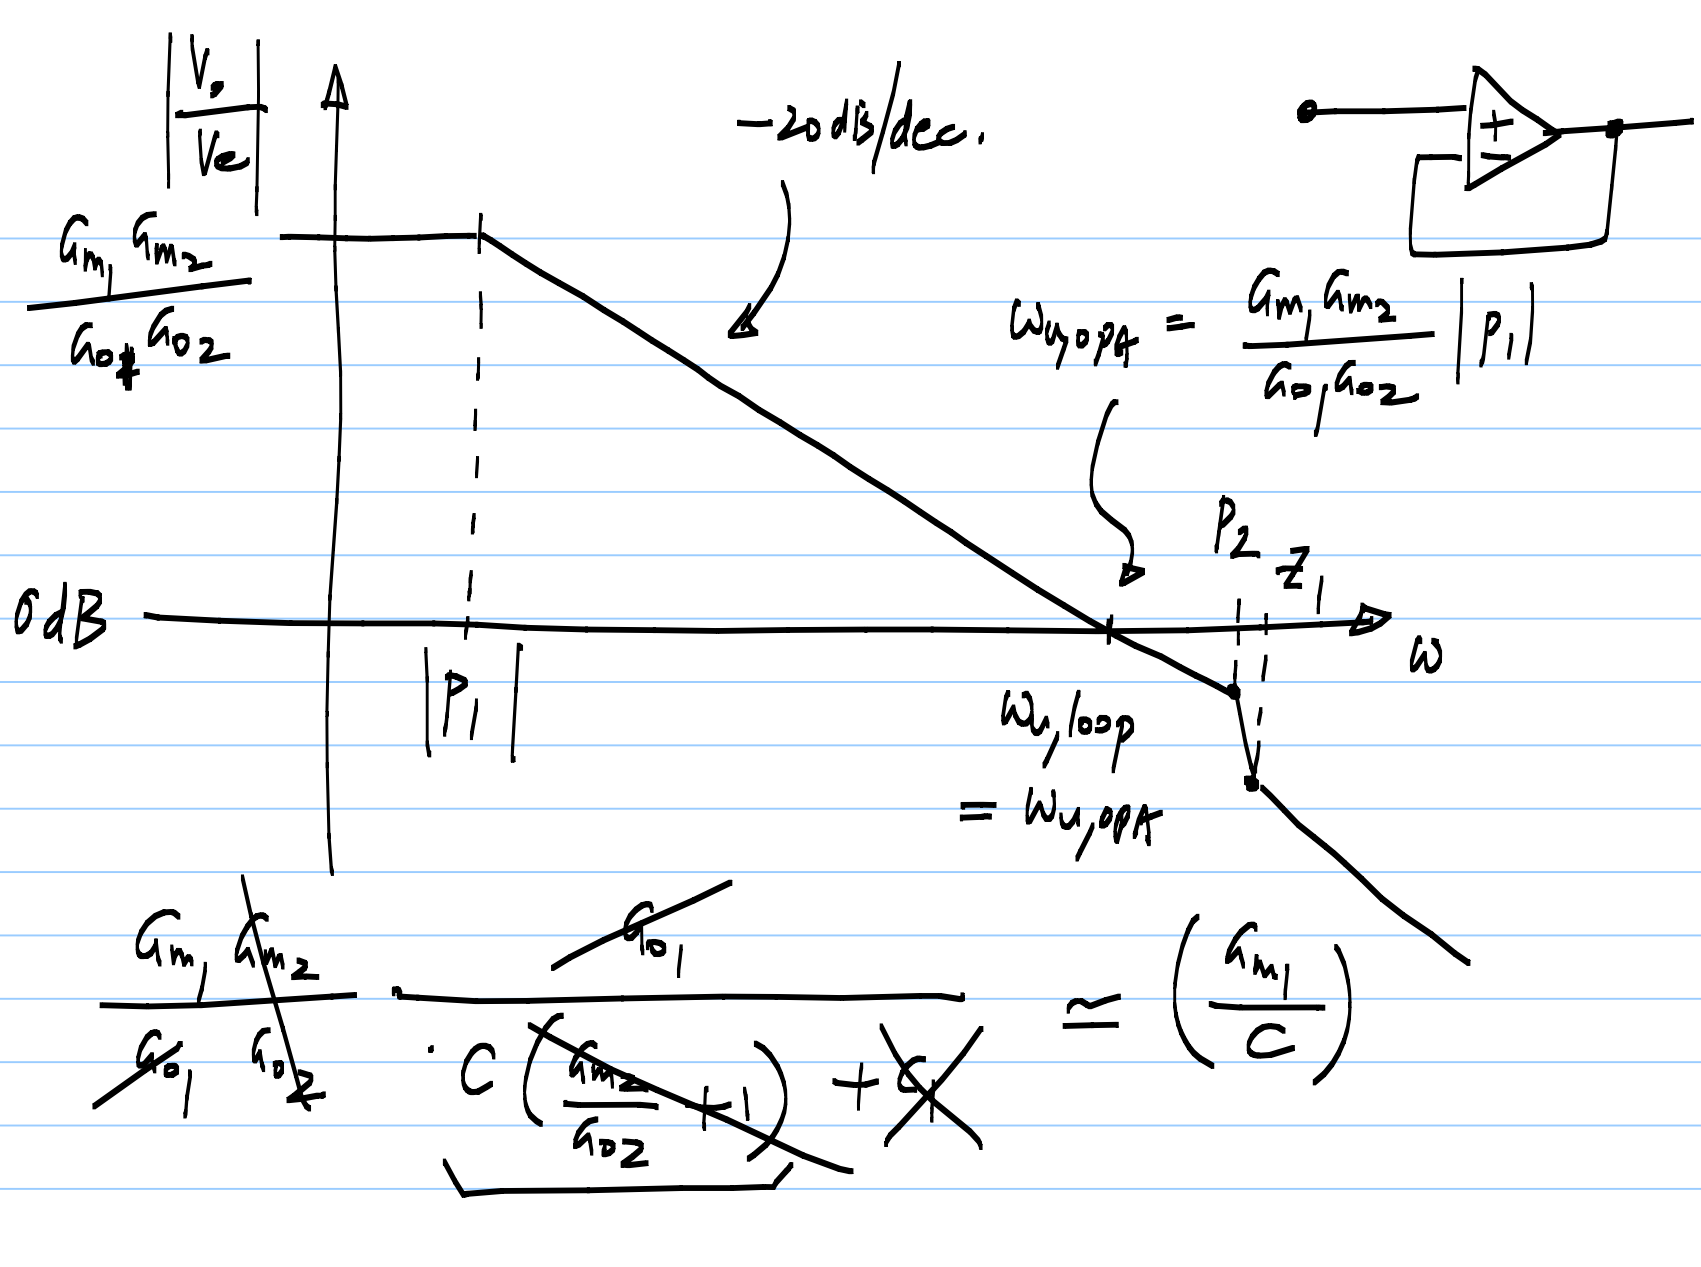 |V₀/Vₑ|
-20dB/dec.
+
−
Gm₁ Gm₂ / Go₁ Go₂
ωu,opA = Gm₁ Gm₂ / Go₁ Go₂ |p₁|
p₂ z₁
0dB
ω
|p₁|
ωu,loop
= ωu,opA
Gm₁ Gm₂ / Go₁ Go₂ · Go₁ / C(Gm₂/Go₂ + 1) + C₁ ≃ (Gm₁/C)